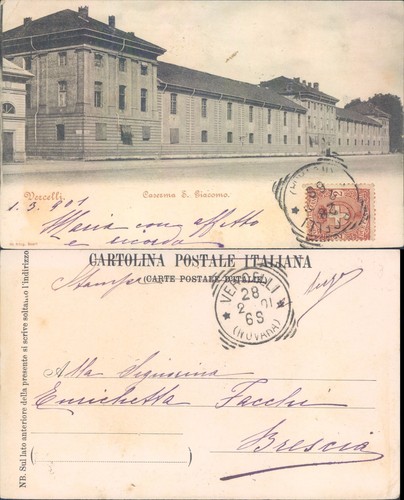 Vercelli.
Caserma S. Giacomo.
1. 3. 901
Maria con affetto
e ricorda
CARTOLINA POSTALE ITALIANA
(CARTE POSTALE D'ITALIE)
NB. Sul lato anteriore della presente si scrive soltanto l'indirizzo
Stampa
VERCELLI
28
2 01
6S
(NOVARA)
Alla Signorina
Enrichetta Facchi
Brescia